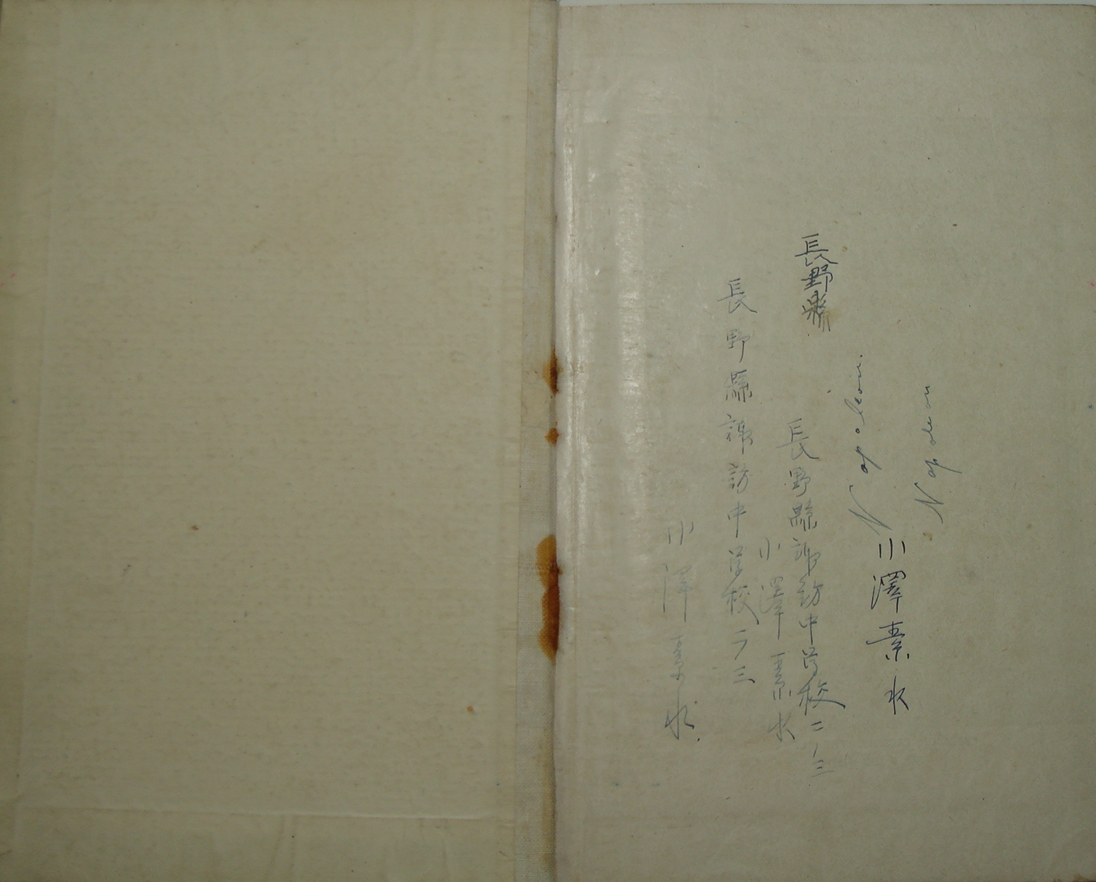 Napoleon
小澤素水
長野縣
長野縣諏訪中学校二ノ三
小澤素水
長野縣諏訪中学校二ノ三
小澤素水